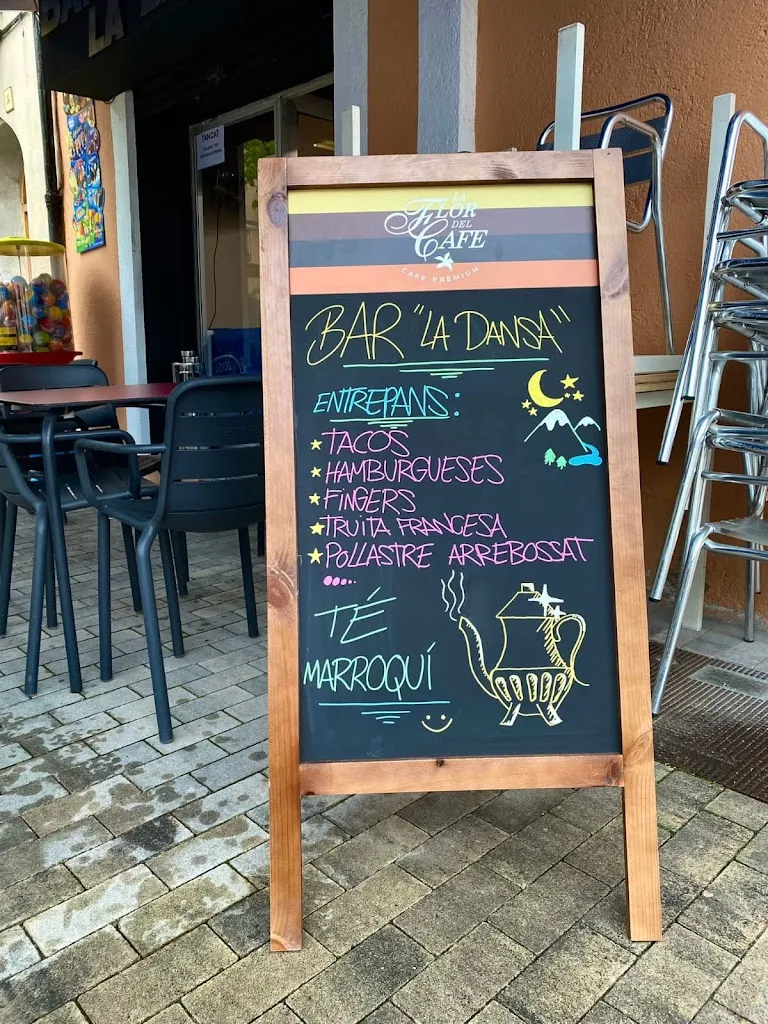 BAR
LA
TANCAT
LA
FLOR
DEL
CAFE
CAFE PREMIUM
BAR "LA DANSA"
ENTREPANS:
TACOS
HAMBURGUESES
FINGERS
TRUITA FRANCESA
POLLASTRE ARREBOSSAT
TÉ
MARROQUÍ